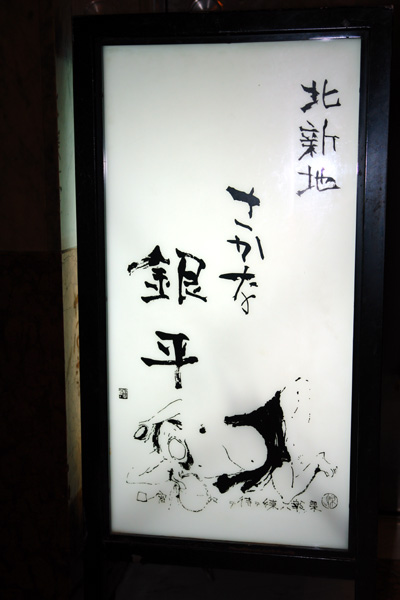 北新地
さかな
銀平